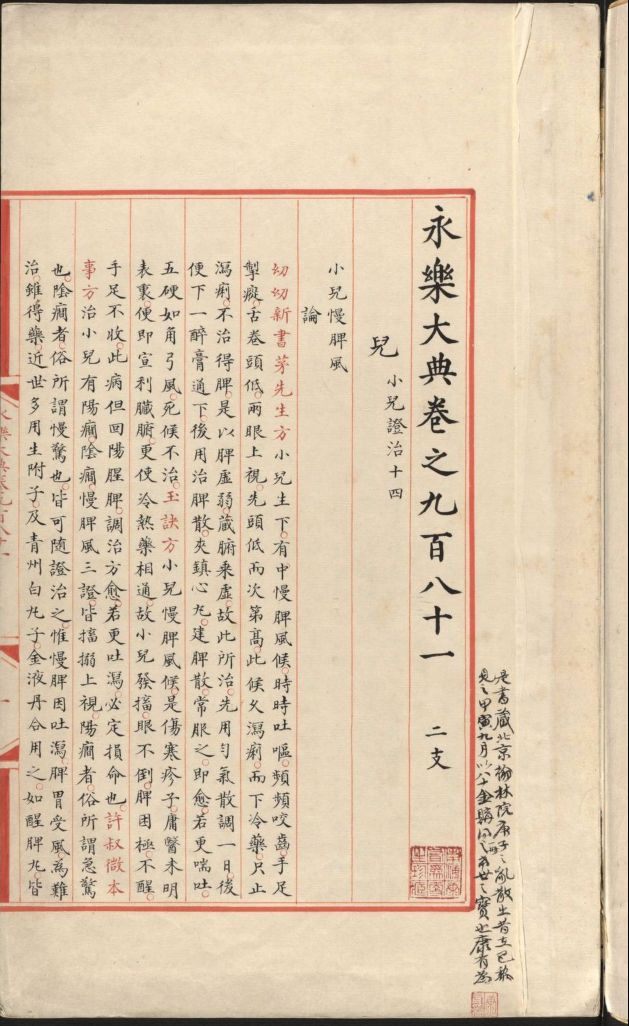 是書藏北京翰林院庚子之亂散出昔在巴黎
見之甲寅九月以八十金購世之寶也康有為
永樂大典卷之九百八十一 二支
兒 小兒證治十四
小兒慢脾風
論
幼幼新書茅先生方小兒生下有中慢脾風候時時吐嘔頻頻咬齒手足
掣癡舌卷頭低兩眼上視先頭低而次第高此候久瀉痢而下冷藥只止
瀉痢不治得脾是以脾虛弱藏腑乘虛故此所治先用勻氣散調一日後
便下一醉膏通下後用治脾散夾鎮心丸建脾散常服之即愈若更喘吐
五硬如角弓風死候不治玉訣方小兒慢脾風候是傷寒疹子庸醫未明
表裏便即宣利臟腑更使冷熱藥相通故小兒發搐眼不倒脾困極不醒
手足不收此病但回陽腥脾調治方愈若更吐瀉必定損命也許叔微本
事方治小兒有陽癎陰癎慢脾風三證皆搐搦上視陽癎者俗所謂急驚
也陰癎者俗所謂慢驚也皆可隨證治之惟慢脾因吐瀉脾胃受風為難
治雖得藥近世多用生附子及青州白丸子金液丹合用之如醒脾丸皆